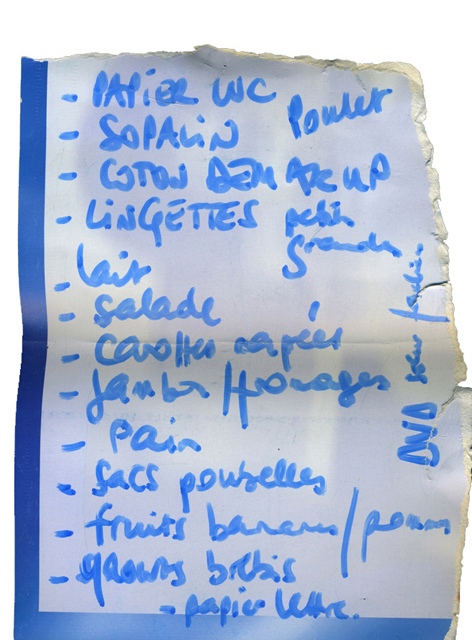 - PAPIER WC
Poulet
- SOPALIN
- COTON DEMAKUP
- LINGETTES petits
grandes
- lait
- salade
- carottes rapées
- Jambon / fromages
- pain
- sacs poubelles
- fruits bananes / pommes
- yaourts brebis
- papier lettre.
DVD